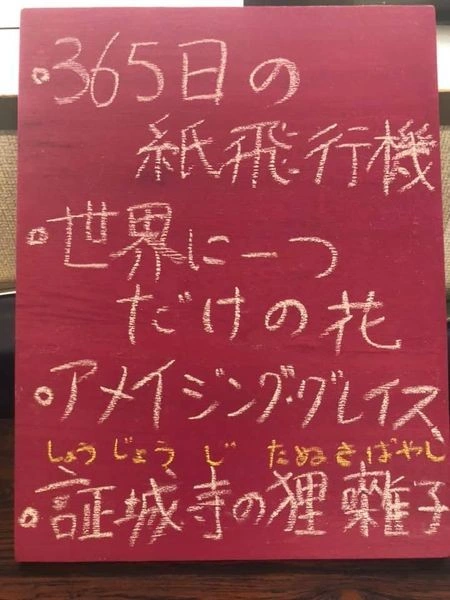 ○365日の
紙飛行機
○世界に一つ
だけの花
○アメイジング・グレイス
しょうじょうじ たぬきばやし
○証城寺の狸囃子